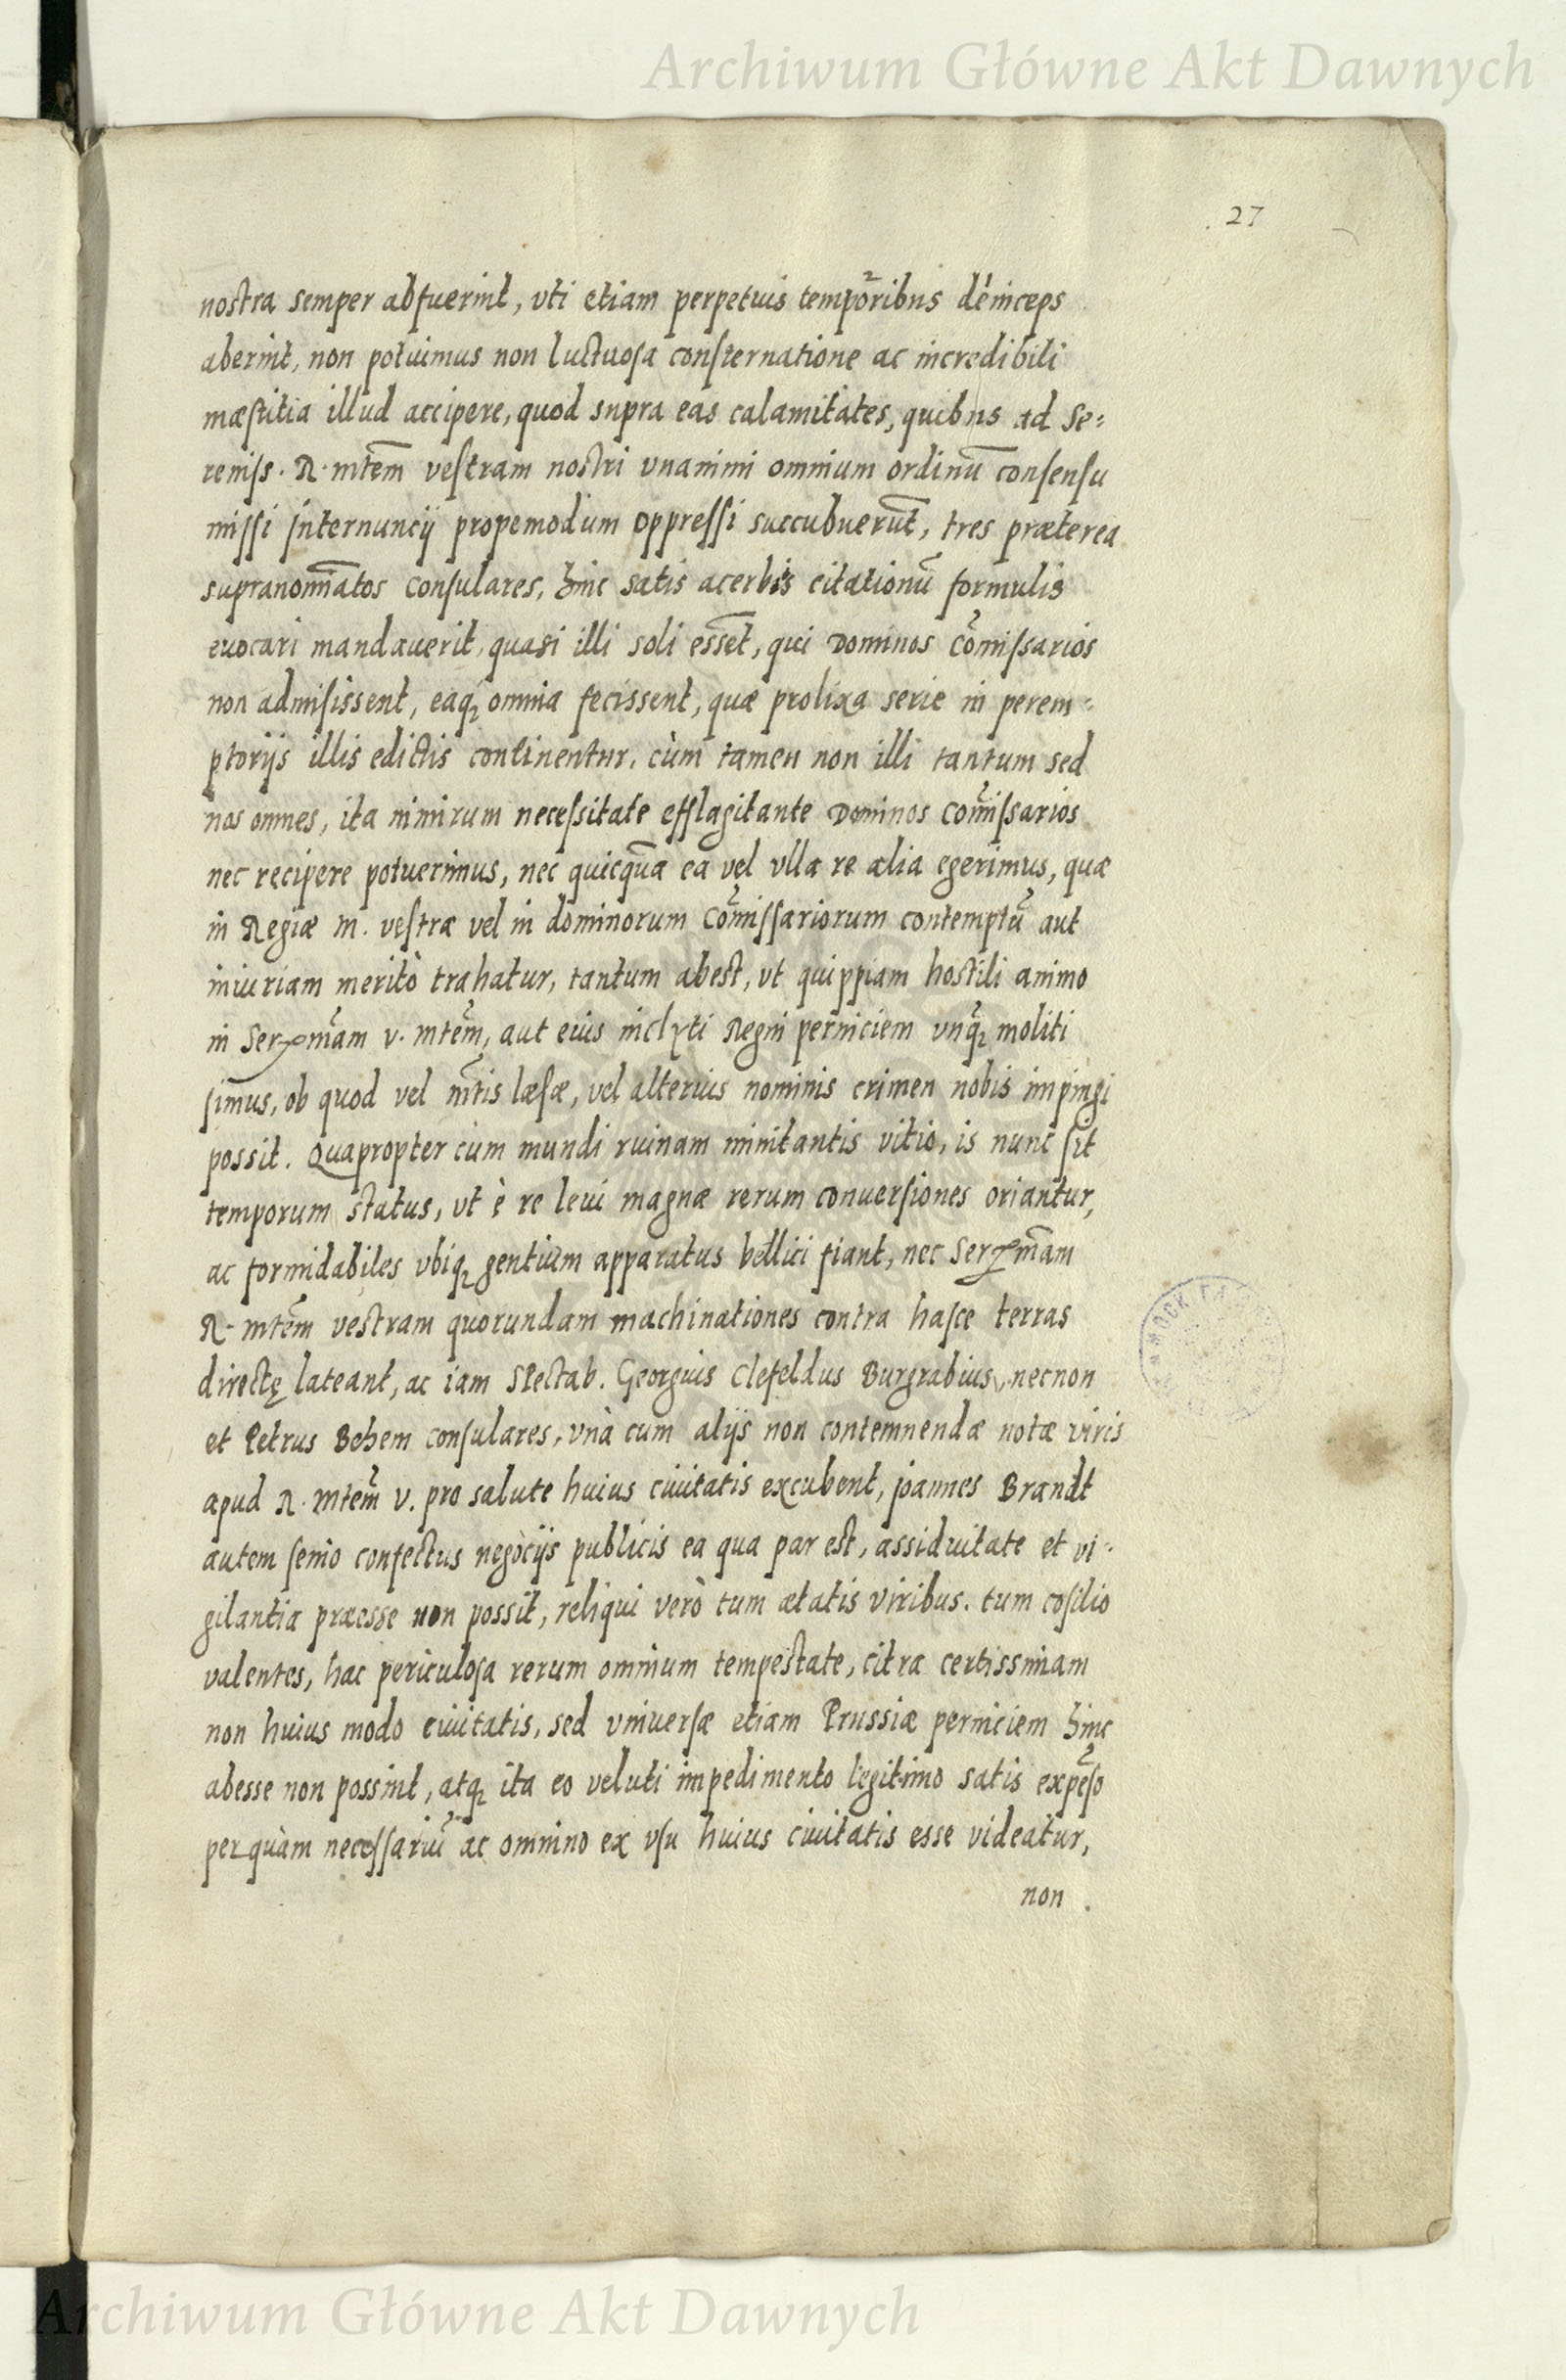 Archiwum Główne Akt Dawnych
27
nostra semper abfuerint, vti etiam perpetuis temporibus deinceps
aberint, non potuimus non luctuosa consternatione ac incredibili
mæstitia illud accipere, quod supra eas calamitates, quibus ad Se=
reniss. R. mtem vestram nostri vnanimi omnium ordinū consensu
missi internuncij propemodum oppressi succubuerūt, tres præterea
supranominatos consulares, hinc satis acerbis citationū formulis
euocari mandauerit, quasi illi soli essēt, qui Dominos Comissarios
non admisissent, eaq; omnia fecissent, quæ prolixa serie in perem=
ptorijs illis edictis continentur, cùm tamen non illi tantum sed
nos omnes, ita nimirum necessitate efflagitante Dominos Comissarios
nec recipere potuerimus, nec quicquā ea vel vlla re alia egerimus, quæ
in Regiæ M. vestræ vel in dominorum Comissariorum contemptū aut
iniuriam meritò trahatur, tantum abest, vt quippiam hostili animo
in Ser mam v. mtem, aut eius inclyti Regni perniciem vnq; moliti
simus, ob quod vel mtis læsæ, vel alterius nominis crimen nobis impingi
possit. Quapropter cùm mundi ruinam minitantis vitio, is nunc sit
temporum status, vt è re leui magnæ rerum conuersiones oriantur,
ac formidabiles vbiq; gentium apparatus bellici fiant, nec Ser mam
R. mtem vestram quorundam machinationes contra hasce terras
directę lateant, ac iam Spectab. Georgius Clefeldus Burgrabius, necnon
et Petrus Behem consulares, vnà cum alijs non contemnendæ notæ viris
apud R. mtem v. pro salute huius ciuitatis excubent, Joannes Brandt
autem senio confectus negocijs publicis ea qua par est, assiduitate et vi=
gilantia præesse non possit, reliqui verò tum ætatis viribus, tum cosilio
valentes, hac periculosa rerum omnium tempestate, citra certissimam
non huius modo ciuitatis, sed vniuersæ etiam Prussiæ perniciem hinc
abesse non possint, atq; ita eo veluti impedimento legitimo satis expēso
perquàm necessariū ac omnino ex vsu huius ciuitatis esse videatur,
non
Archiwum Główne Akt Dawnych